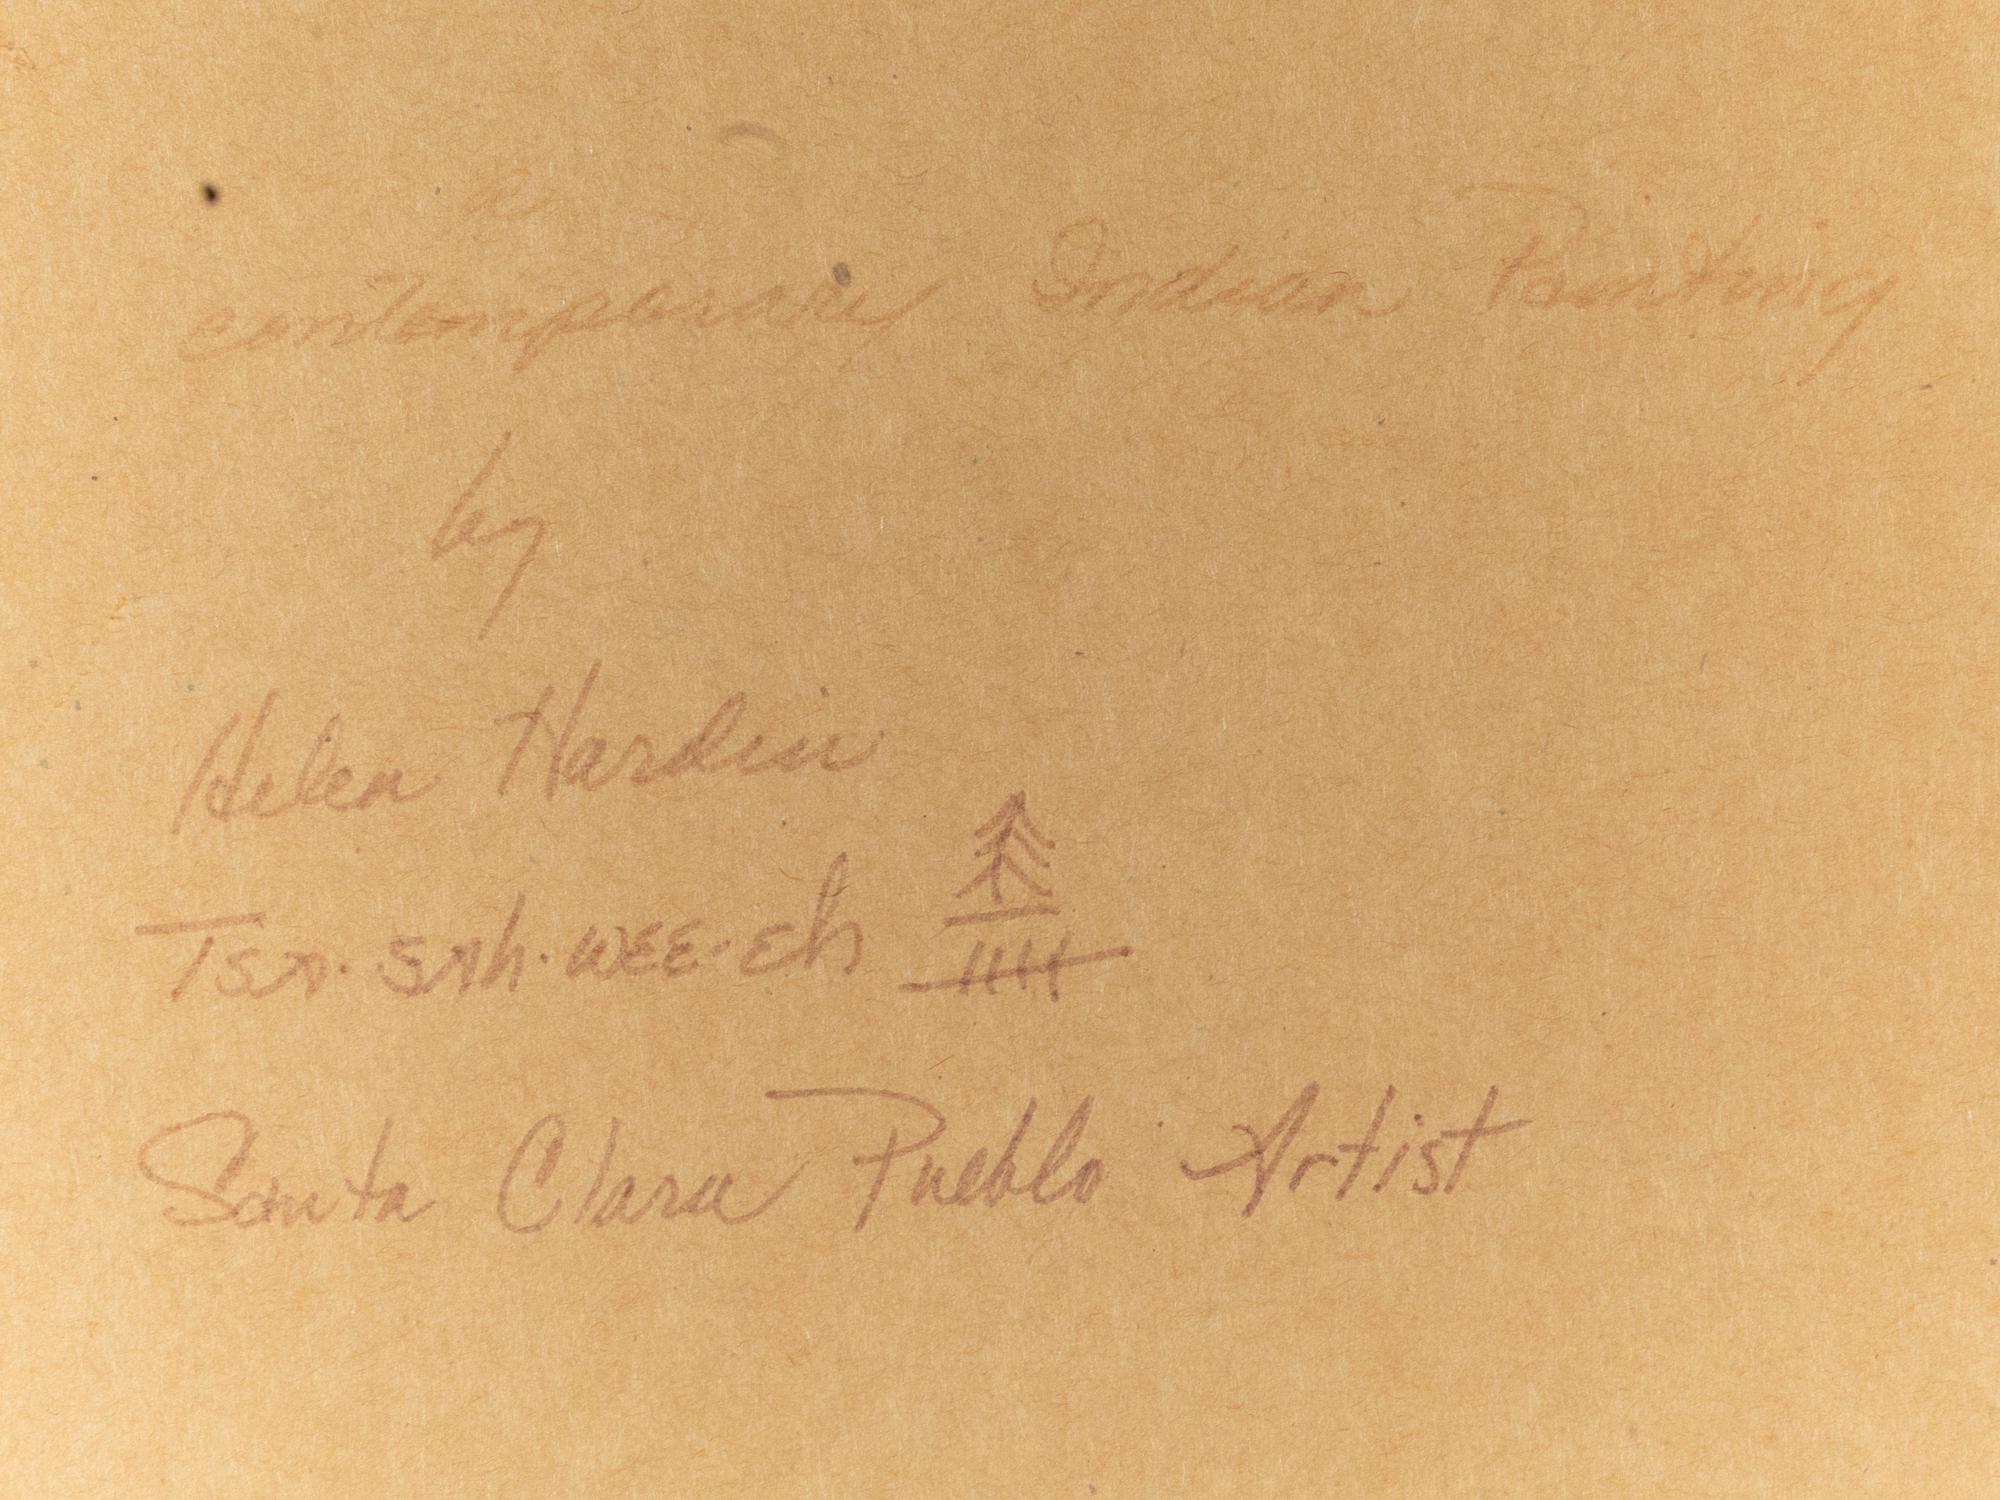 contemporary Indian Painting
by
Helen Hardin
Tsa·sah·wee·eh
Santa Clara Pueblo Artist